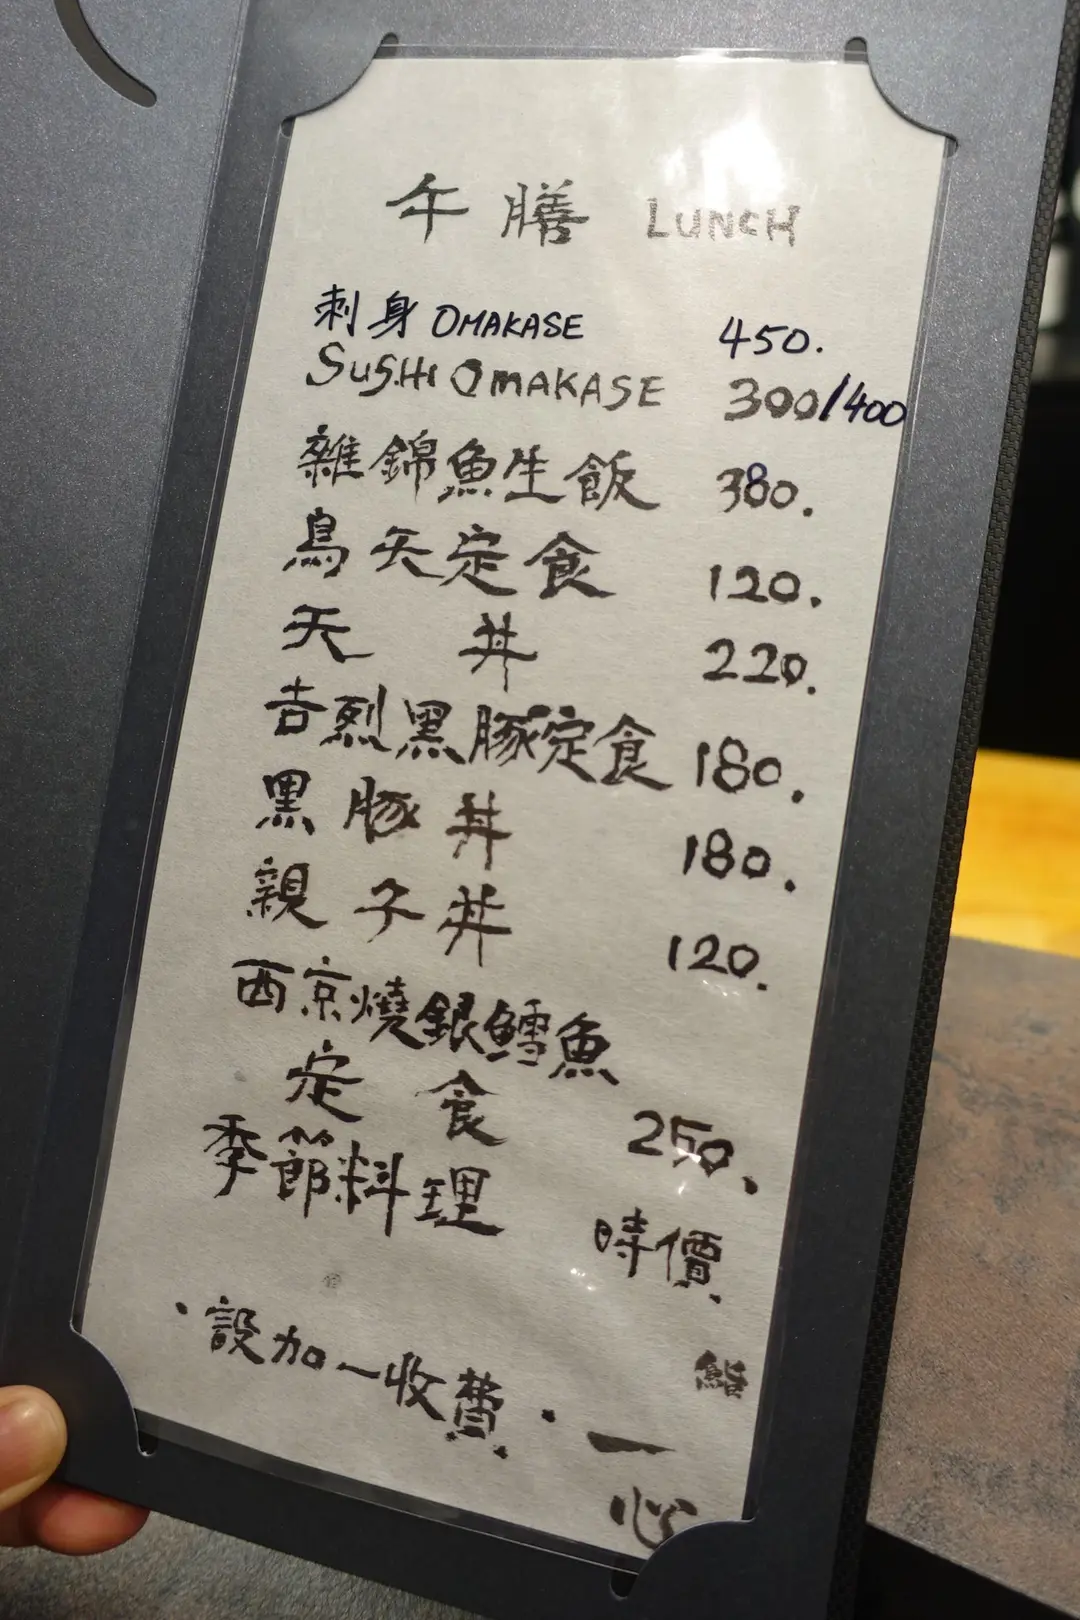 午膳 LUNCH
刺身 OMAKASE 450.
SUSHI OMAKASE 300/400
雜錦魚生飯 380.
鳥天定食 120.
天丼 220.
吉烈黑豚定食 180.
黑豚丼 180.
親子丼 120.
西京燒銀鱈魚
定食 250.
季節料理 時價.
·設加一收費·
鮨
一
心